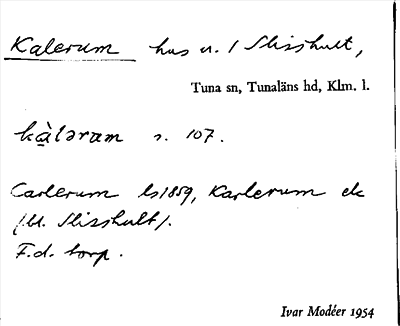 Kalerum hus u. / Slisshult,
Tuna sn, Tunaläns hd, Klm. l.
kàləram s. 107.
Carlerum ls 1859, Karlerum ek
/bl. Slisshult/.
F.d. torp.
Ivar Modéer 1954